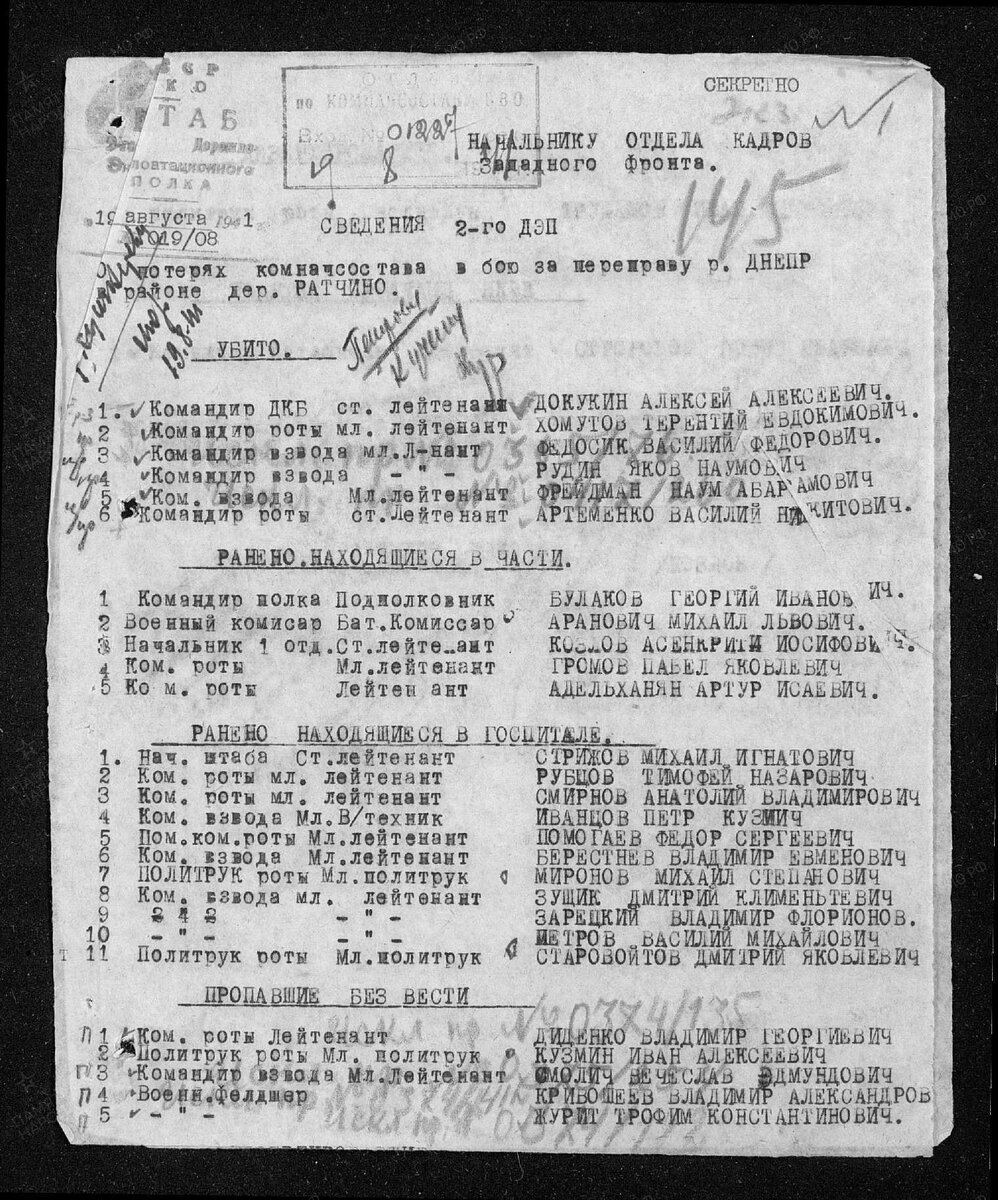 СЕКРЕТНО
№1
ШТАБ
Эксплоатационного
ПОЛКА
по КОМНАЧСОСТАВА
Вход. № 01227
9 8
НАЧАЛЬНИКУ ОТДЕЛА КАДРОВ
Западного фронта.
145
"19 августа 1941
019/08
СВЕДЕНИЯ 2-го ДЭП
О потерях комначсостава в бою за переправу р. ДНЕПР
в районе дер. РАТЧИНО.
19.8.41
УБИТО.
1. Командир ДКБ ст. лейтенант ДОКУКИН АЛЕКСЕЙ АЛЕКСЕЕВИЧ.
2 Командир роты мл. лейтенант ХОМУТОВ ТЕРЕНТИЙ ЕВДОКИМОВИЧ.
3 Командир взвода мл.Л-нант ФЕДОСИК ВАСИЛИЙ ФЕДОРОВИЧ.
4 Командир взвода - " - РУДИН ЯКОВ НАУМОВИЧ
5 Ком. взвода Мл.лейтенант ФРЕЙДМАН НАУМ АБАРАМОВИЧ
6 Командир роты ст.Лейтенант АРТЕМЕНКО ВАСИЛИЙ НИКИТОВИЧ.
РАНЕНО.НАХОДЯЩИЕСЯ В ЧАСТИ.
1 Командир полка Подполковник БУЛАКОВ ГЕОРГИЙ ИВАНОВИЧ.
2 Военный комисар Бат.Комиссар АРАНОВИЧ МИХАИЛ ЛЬВОВИЧ.
3 Начальник 1 отд.Ст.лейтенант КОЗЛОВ АСЕНКРИТИ ИОСИФОВИЧ.
4 Ком. роты Мл.лейтенант ГРОМОВ ПАВЕЛ ЯКОВЛЕВИЧ
5 Ком. роты Лейтенант АДЕЛЬХАНЯН АРТУР ИСАЕВИЧ.
РАНЕНО НАХОДЯЩИЕСЯ В ГОСПИТАЛЕ.
1. Нач. штаба Ст.лейтенант СТРИЖОВ МИХАИЛ ИГНАТОВИЧ
2 Ком. роты мл. лейтенант РУБЦОВ ТИМОФЕЙ НАЗАРОВИЧ
3 Ком. роты мл. лейтенант СМИРНОВ АНАТОЛИЙ ВЛАДИМИРОВИЧ
4 Ком. взвода Мл.В/техник ИВАНЦОВ ПЕТР КУЗМИЧ
5 Пом.ком.роты Мл.лейтенант ПОМОГАЕВ ФЕДОР СЕРГЕЕВИЧ
6 Ком. взвода Мл.лейтенант БЕРЕСТНЕВ ВЛАДИМИР ЕВМЕНОВИЧ
7 ПОЛИТРУК роты Мл.политрук МИРОНОВ МИХАИЛ СТЕПАНОВИЧ
8 Ком. взвода мл. лейтенант ЗУЩИК ДМИТРИЙ КЛИМЕНЬТЕВИЧ
9 - " - ЗАРЕЦКИЙ ВЛАДИМИР ФЛОРИОНОВ.
10 - " - - " - ПЕТРОВ ВАСИЛИЙ МИХАЙЛОВИЧ
11 Политрук роты Мл.политрук СТАРОВОЙТОВ ДМИТРИЙ ЯКОВЛЕВИЧ
ПРОПАВШИЕ БЕЗ ВЕСТИ
№ 0374/135
П 1 Ком. роты Лейтенант ДИДЕНКО ВЛАДИМИР ГЕОРГИЕВИЧ
2 Политрук роты Мл. политрук КУЗМИН ИВАН АЛЕКСЕЕВИЧ
П 3 Командир взвода Мл.Лейтенант СМОЛИЧ ВЕЧЕСЛАВ ЭДМУНДОВИЧ
П 4 Воени.Фелдшер КРИВОШЕЕВ ВЛАДИМИР АЛЕКСАНДРОВ
П 5 - " - ЖУРИТ ТРОФИМ КОНСТАНТИНОВИЧ.